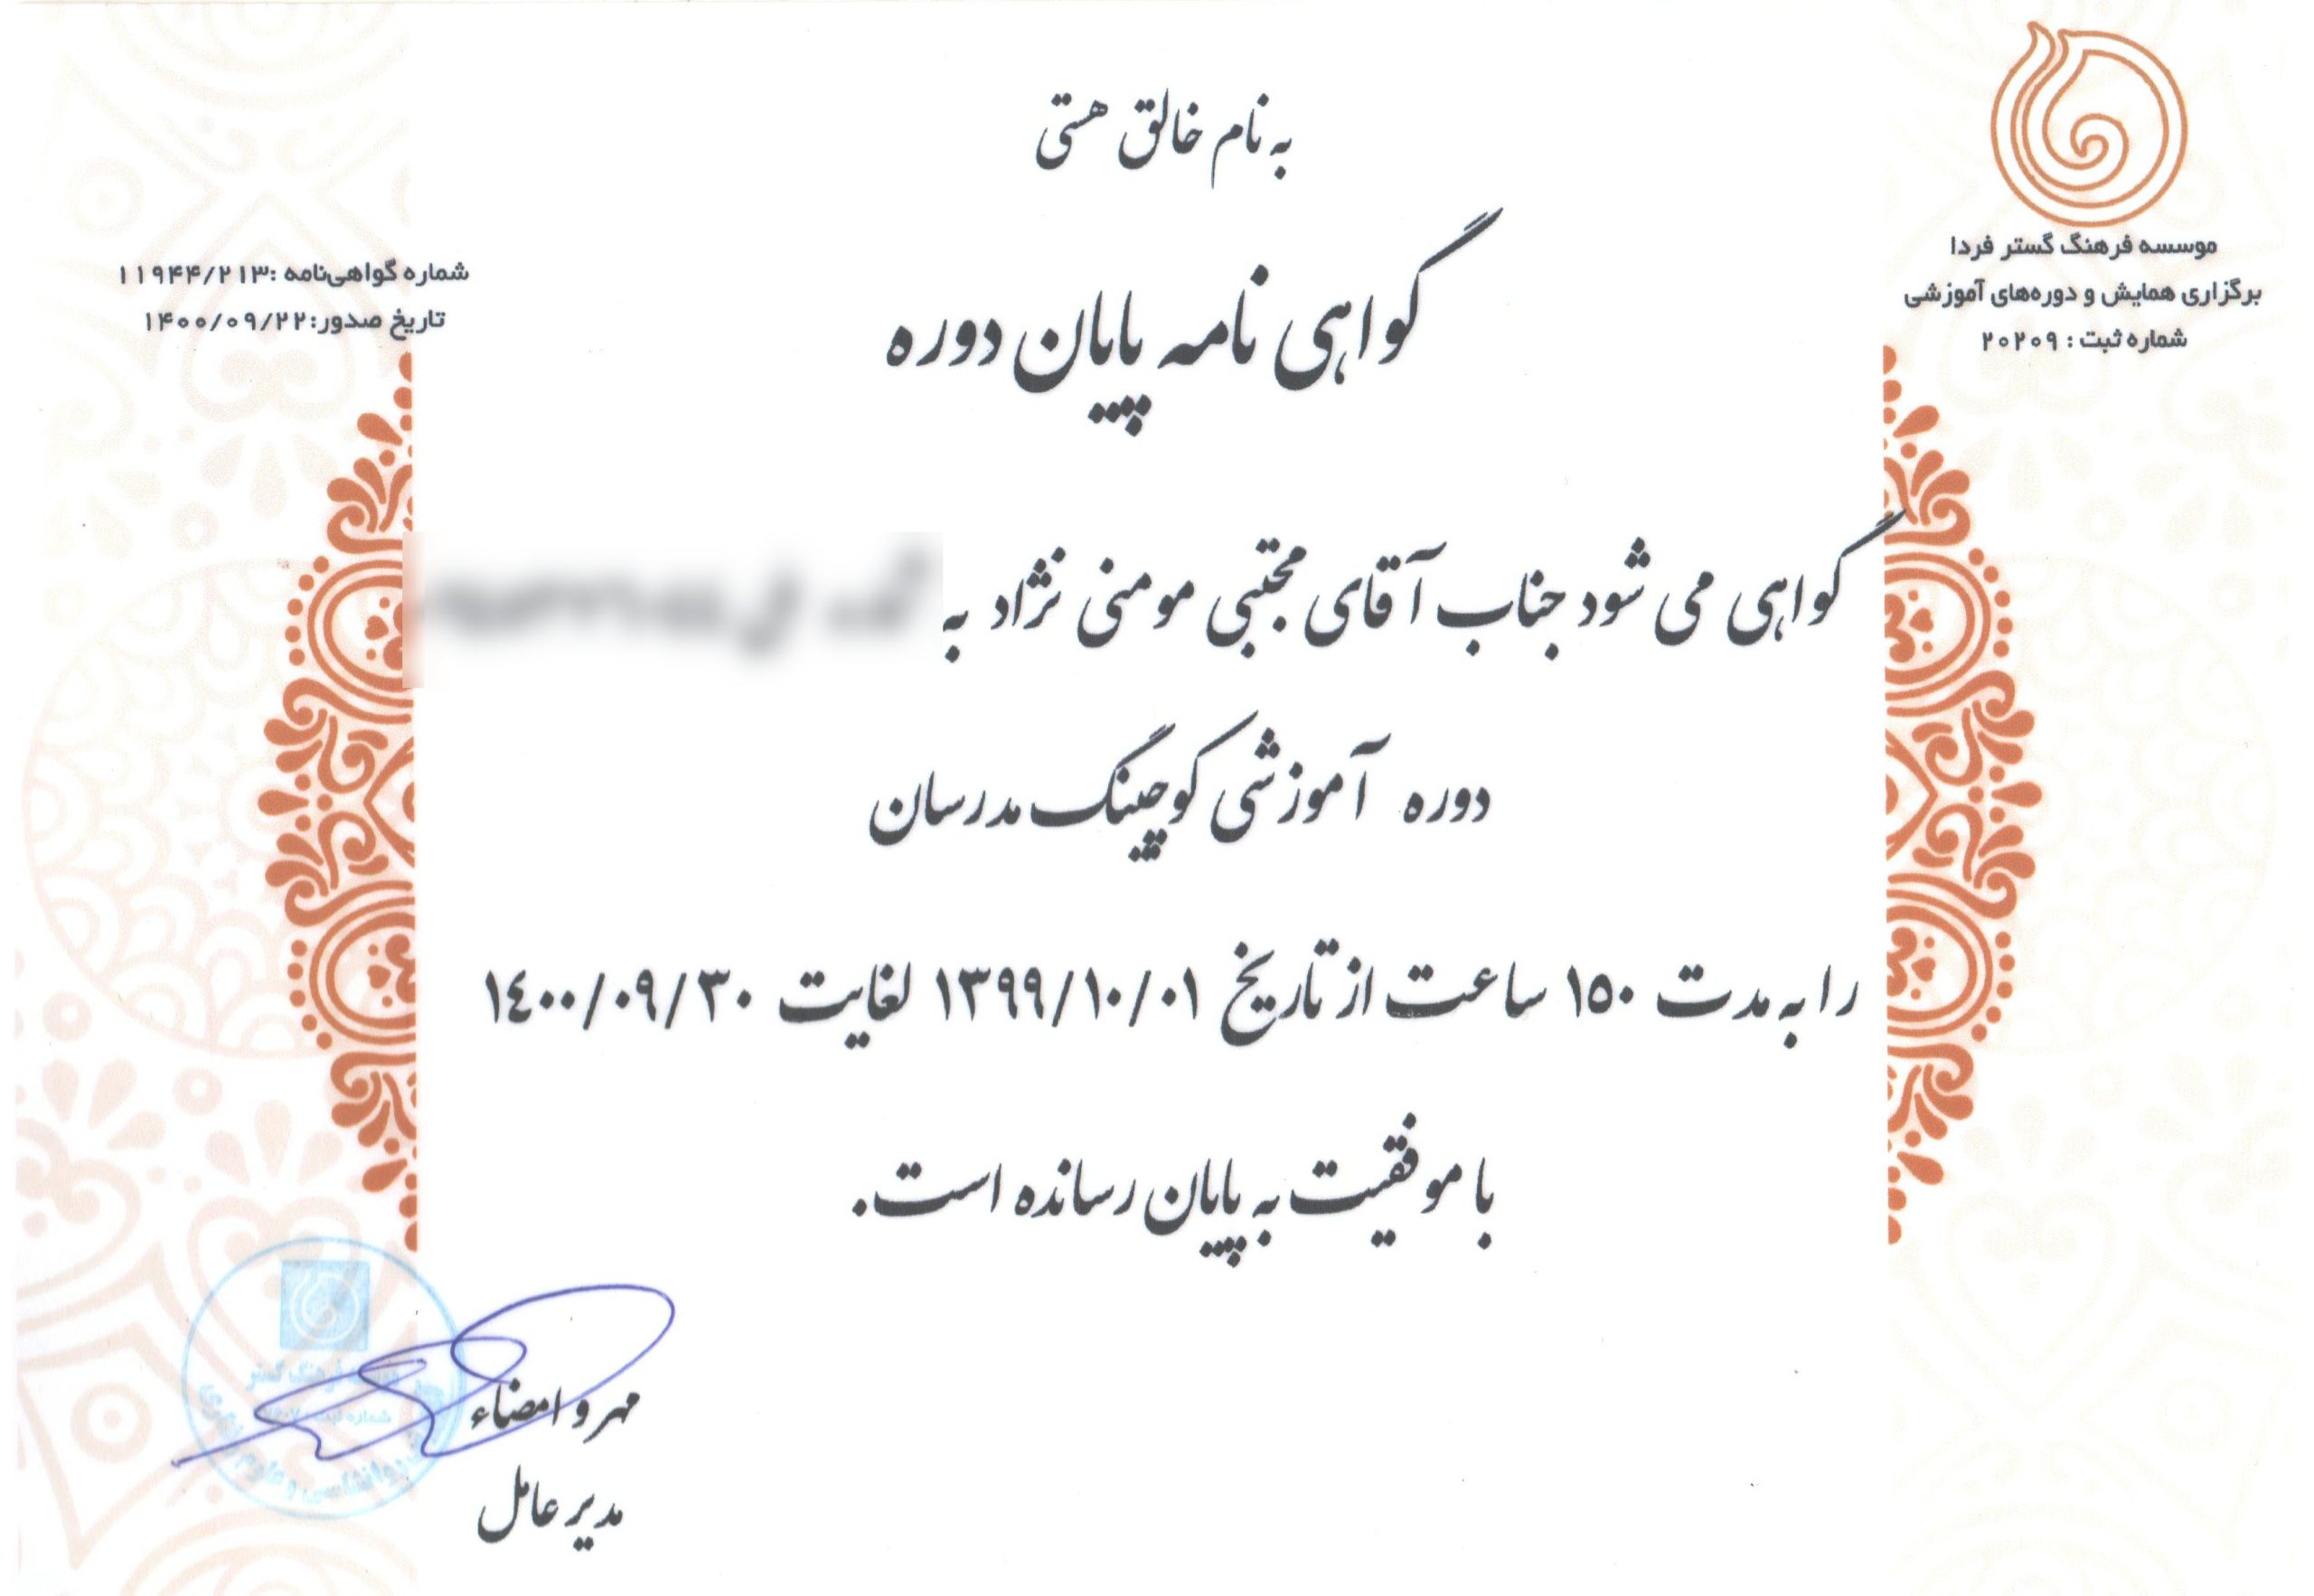 به نام خالق هستی
موسسه فرهنگ گستر فردا
برگزاری همایش و دوره‌های آموزشی
شماره ثبت : ۲۰۲۰۹
شماره گواهی‌نامه :۱۱۹۴۴/۲۱۳
تاریخ صدور:۱۴۰۰/۰۹/۲۲
گواهی نامه پایان دوره
گواهی می شود جناب آقای مجتبی مومنی نژاد به
دوره آموزشی کوچینگ مدرسان
را به مدت ۱۵۰ ساعت از تاریخ ۱۳۹۹/۱۰/۰۱ لغایت ۱۴۰۰/۰۹/۳۰
با موفقیت به پایان رسانده است.
مهر و امضاء
مدیر عامل
فرهنگ گستر
شماره ثبت
روانشناسی و علوم